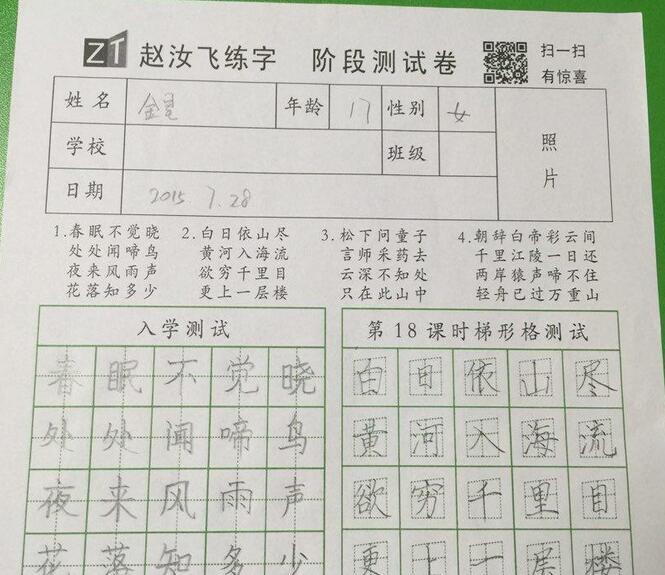 ZT 赵汝飞练字 阶段测试卷 扫一扫
有惊喜
姓名 年龄 17 性别 女
学校 班级 照片
日期 2015 7.28
1.春眠不觉晓 2.白日依山尽 3.松下问童子 4.朝辞白帝彩云间
处处闻啼鸟 黄河入海流 言师采药去 千里江陵一日还
夜来风雨声 欲穷千里目 云深不知处 两岸猿声啼不住
花落知多少 更上一层楼 只在此山中 轻舟已过万重山
入学测试 第18课时梯形格测试
春眠不觉晓 白日依山尽
处处闻啼鸟 黄河入海流
夜来风雨声 欲穷千里目
花落知多少 更上一层楼